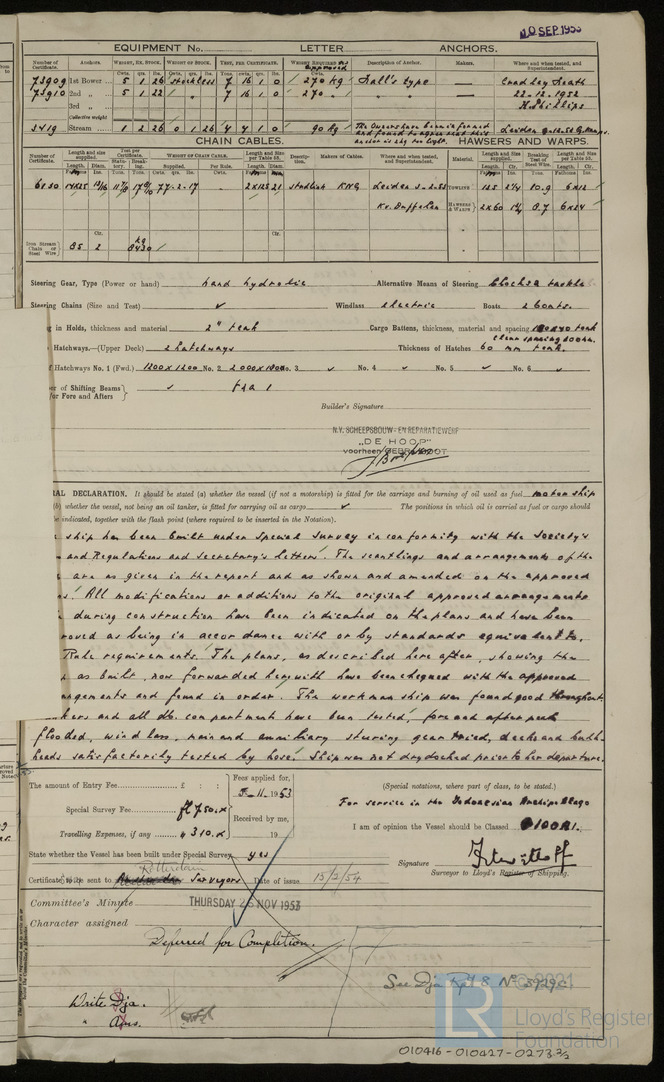 10 SEP 1953
EQUIPMENT No. LETTER ANCHORS.
Number of Certificate. Anchors. WEIGHT, EX. STOCK WEIGHT OF STOCK. TEST, PER CERTIFICATE. WEIGHT REQUIRED Description of Anchor. Makers. Where and when tested, and Superintendent.
Cwts. qrs. lbs. Cwts. qrs. lbs. Tons. cwts. qrs. lbs.
73909 1st Bower 5 1 26 stockless 7 16 1 0 270 kg Hall's type — Cradley Heath
73910 2nd „ 5 1 22 „ 7 16 1 0 270 „ „ — 22-12-1952
3rd „ H. Phillips
Collective weight
3419 Stream 1 2 26 0 1 26 4 4 1 0 90 kg
CHAIN CABLES. HAWSERS AND WARPS.
Number of Certificate. Length and size supplied. Test per Certificate. WEIGHT OF CHAIN CABLE. Length and Size per Table 53. Description. Makers of Cables. Where and when tested, and Superintendent. Material. Length and Size supplied. Breaking Test of Steel Wire. Length and Size per Table 53.
Length. Diam. Supplied. Per Rule. Length. Diam. Length. Cir. Tons. Fathoms Cir.
studlink TOWLINE 125 2¼ 10.9 6x12
HAWSERS & WARPS 2x60 8.7 6x24
Iron Stream Chain or Steel Wire 85 2 8430
Steering Gear, Type (Power or hand) hand hydrolic Alternative Means of Steering Blocks & tackle
Steering Chains (Size and Test) Windlass electric Boats 2 boats.
g in Holds, thickness and material 2" teak Cargo Battens, thickness, material and spacing
Hatchways.—(Upper Deck) 2 hatchways Thickness of Hatches 60 mm teak.
f Hatchways No. 1 (Fwd.) 1200 x 1200 No. 2 No. 3 No. 4 No. 5 No. 6
er of Shifting Beams
/or Fore and Afters
Builder's Signature
N.V. SCHEEPSBOUW- EN REPARATIEWERF
„DE HOOP"
voorheen
AL DECLARATION. It should be stated (a) whether the vessel (if not a motorship) is fitted for the carriage and burning of oil used as fuel motor ship
(b) whether the vessel, not being an oil tanker, is fitted for carrying oil as cargo The positions in which oil is carried as fuel or cargo should
be indicated, together with the flash point (where required to be inserted in the Notation).
ship has been built under Special Survey in conformity with the Society's
and Regulations and Secretary's letters. The scantlings and arrangements of the
are as given in the report and as shown and amended on the approved
s. All modifications or additions to the original approved arrangements
during construction have been indicated on the plans and have been
roved as being in accordance with or by standards equivalent to,
Rule requirements. The plans, as described here after, showing the
as built, now forwarded herewith have been chequed with the approved
ngements and found in order. The workmanship was found good throughout,
kers and all db. compartment have been tested, fore and after peak
flooded, windlass, main and auxiliary steering gear tried, decks and bulk-
heads satisfactorily tested by hose. Ship was not drydocked prior to her departure.
The amount of Entry Fee £ : : Fees applied for,
-11-1953
Special Survey Fee fl 750.x Received by me,
Travelling Expenses, if any „ 310.x 19
(Special notations, where part of class, to be stated.)
For service in the Indonesian Archipelago
I am of opinion the Vessel should be Classed 100A1.
State whether the Vessel has been built under Special Survey yes
Rotterdam
Certificate to be sent to Surveyors Date of issue 15/2/54
Signature
Surveyor to Lloyd's Register of Shipping.
Committee's Minute THURSDAY 26 NOV 1953
Character assigned
Deferred for Completion.
See Dja Rpt 8 No
Write Dja.
„ Ams.
© 2021
LR
Lloyd's Register
Foundation
010416-010427-0273 2/2